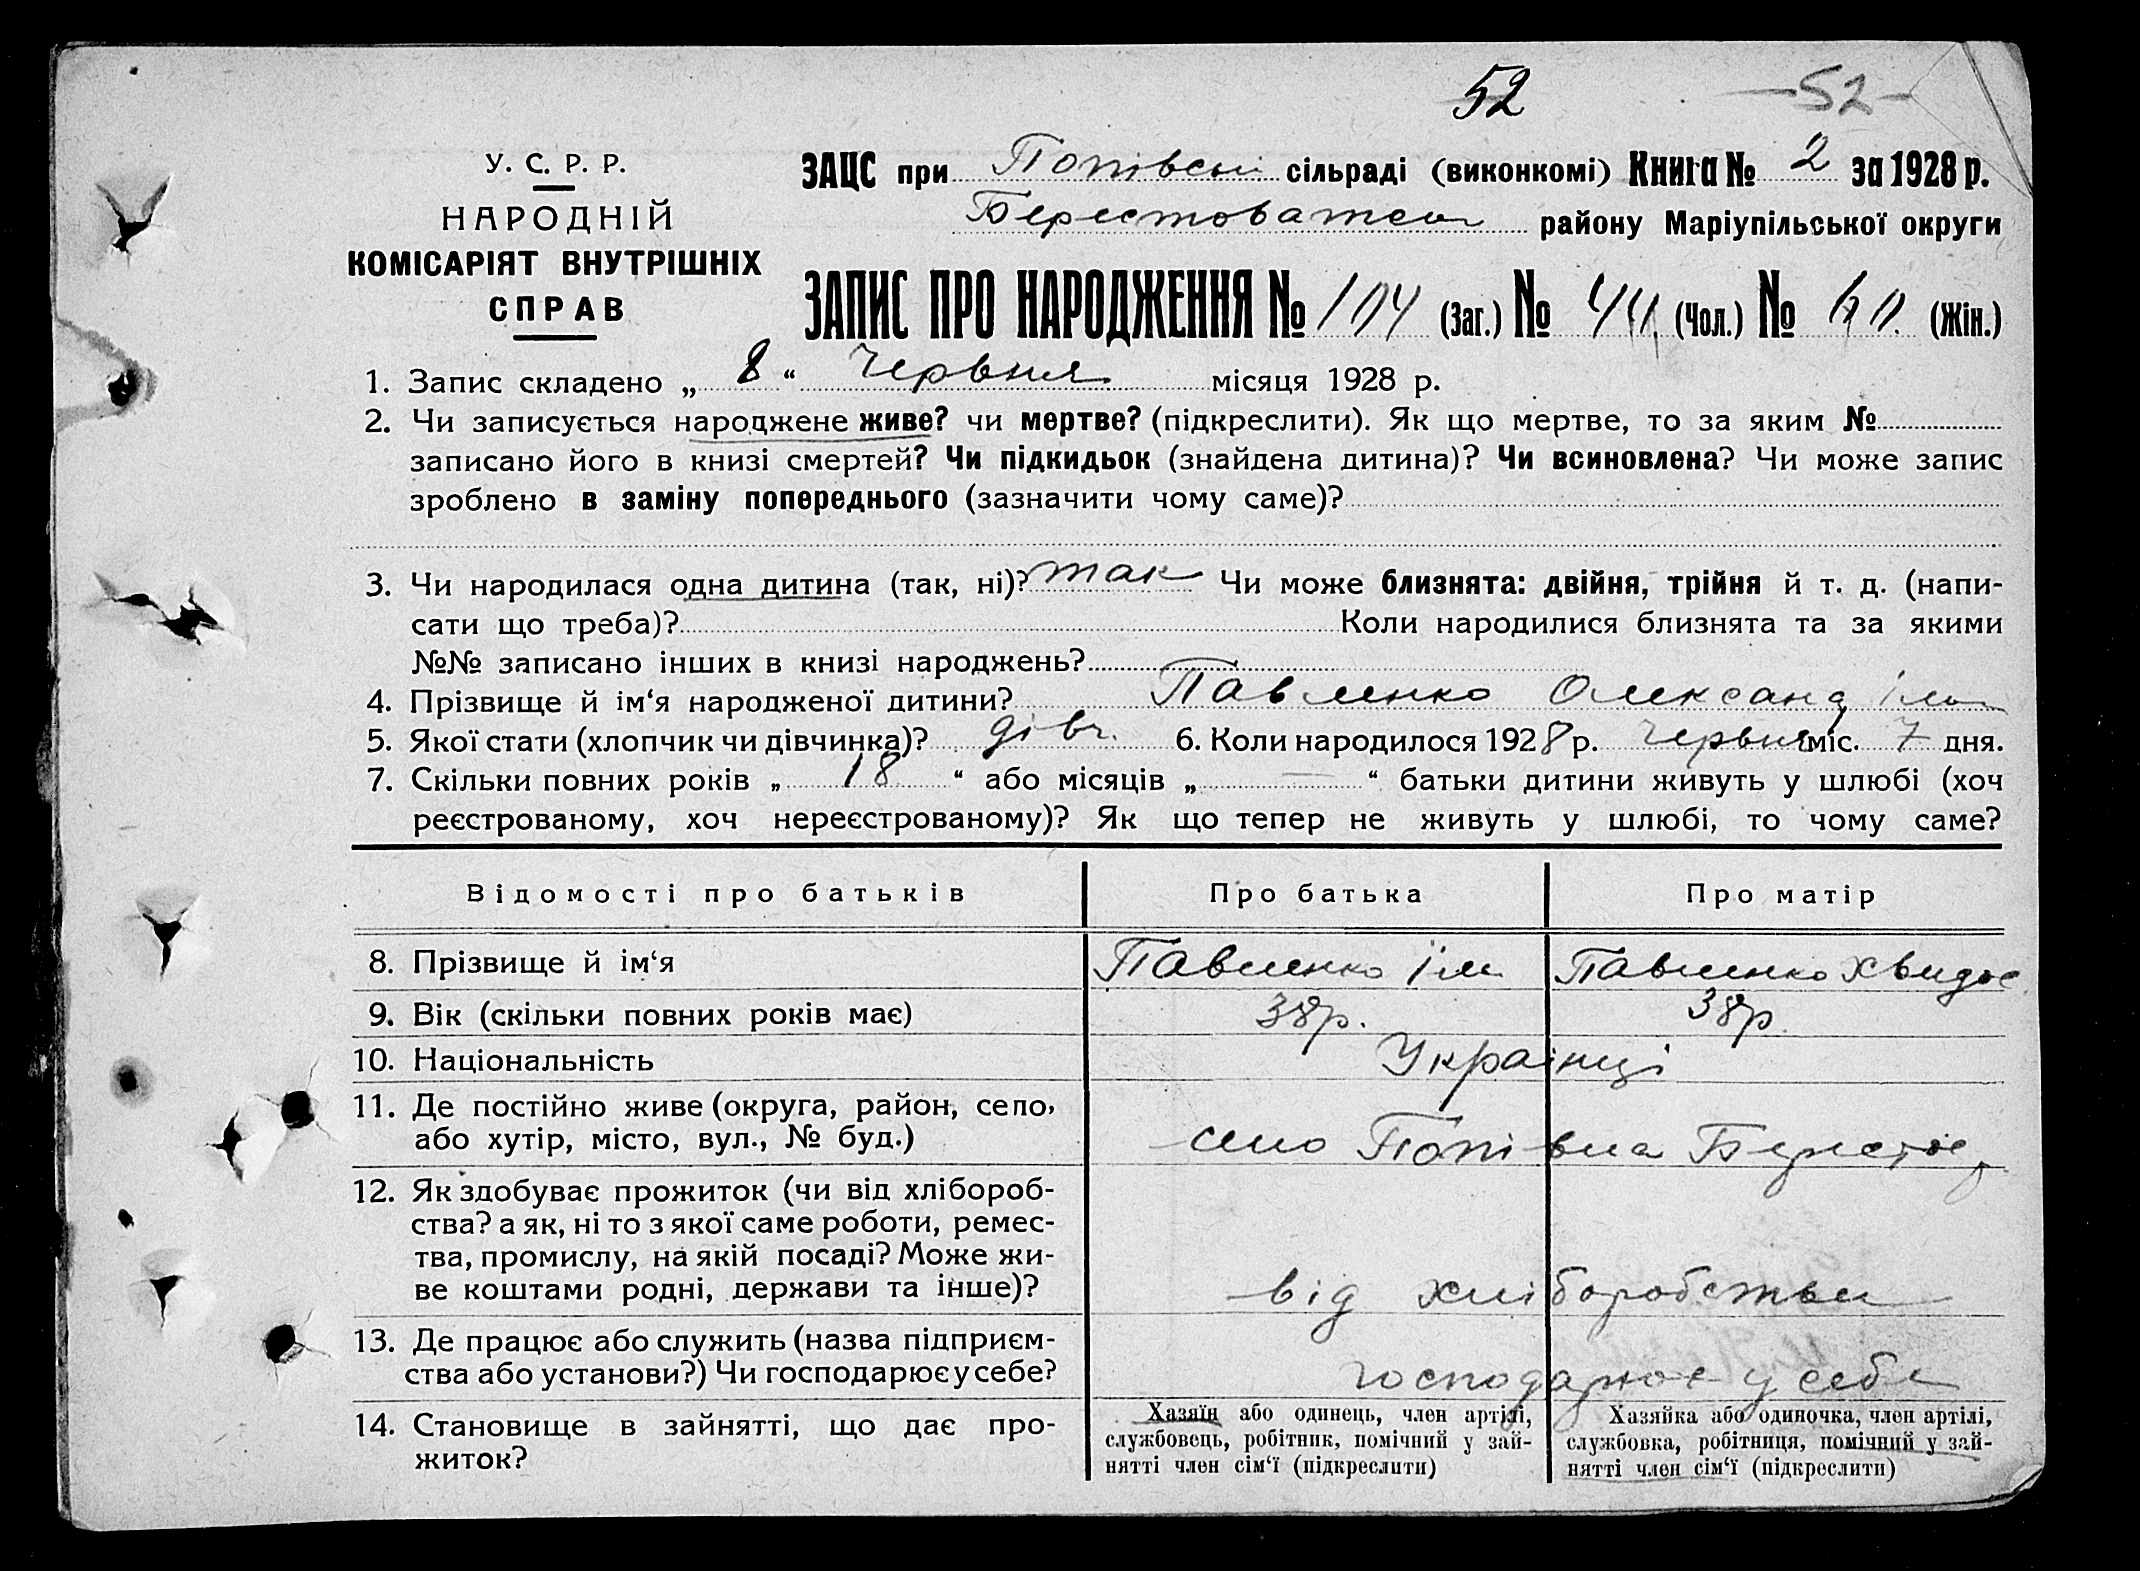 52
-52-
У. С. Р. Р.
НАРОДНІЙ
КОМІСАРІЯТ ВНУТРІШНІХ
СПРАВ
ЗАЦС при Попівськ сільраді (виконкомі) Книга № 2 за 1928 р.
Берестоватськ району Маріупільської округи
ЗАПИС ПРО НАРОДЖЕННЯ № 104 (Заг.) № 44 (Чол.) № (Жін.)
1. Запис складено „ 8 “ Червня місяця 1928 р.
2. Чи записується народжене живе? чи мертве? (підкреслити). Як що мертве, то за яким №
записано його в книзі смертей? Чи підкидьок (знайдена дитина)? Чи всиновлена? Чи може запис
зроблено в заміну попереднього (зазначити чому саме)?
3. Чи народилася одна дитина (так, ні)? так Чи може близнята: двійня, трійня й т. д. (напи-
сати що треба)? Коли народилися близнята та за якими
№№ записано інших в книзі народжень?
4. Прізвище й ім‘я народженої дитини? Павленко Олександ
5. Якої стати (хлопчик чи дівчинка)? дівч. 6. Коли народилося 1928 р. червня міс. 7 дня.
7. Скільки повних років „ 18 “ або місяців „ — “ батьки дитини живуть у шлюбі (хоч
реєстрованому, хоч нереєстрованому)? Як що тепер не живуть у шлюбі, то чому саме?
Відомості про батьків Про батька Про матір
8. Прізвище й ім‘я Павленко Павленко Хвидос
9. Вік (скільки повних років має) 38р. 38р
10. Національність Українці
11. Де постійно живе (округа, район, село,
або хутір, місто, вул., № буд.) село Попівка
12. Як здобуває прожиток (чи від хлібороб-
ства? а як, ні то з якої саме роботи, ремес-
тва, промислу, на якій посаді? Може жи-
ве коштами родні, держави та інше)? від хліборобства
13. Де працює або служить (назва підприєм-
ства або установи?) Чи господарює у себе? господарює у себе
14. Становище в зайнятті, що дає про-
житок?
Хазяїн або одинець, член артілі,
службовець, робітник, помічний у зай-
нятті член сім‘ї (підкреслити)
Хазяйка або одиночка, член артілі,
службовка, робітниця, помічний у зай-
нятті член сім‘ї (підкреслити)